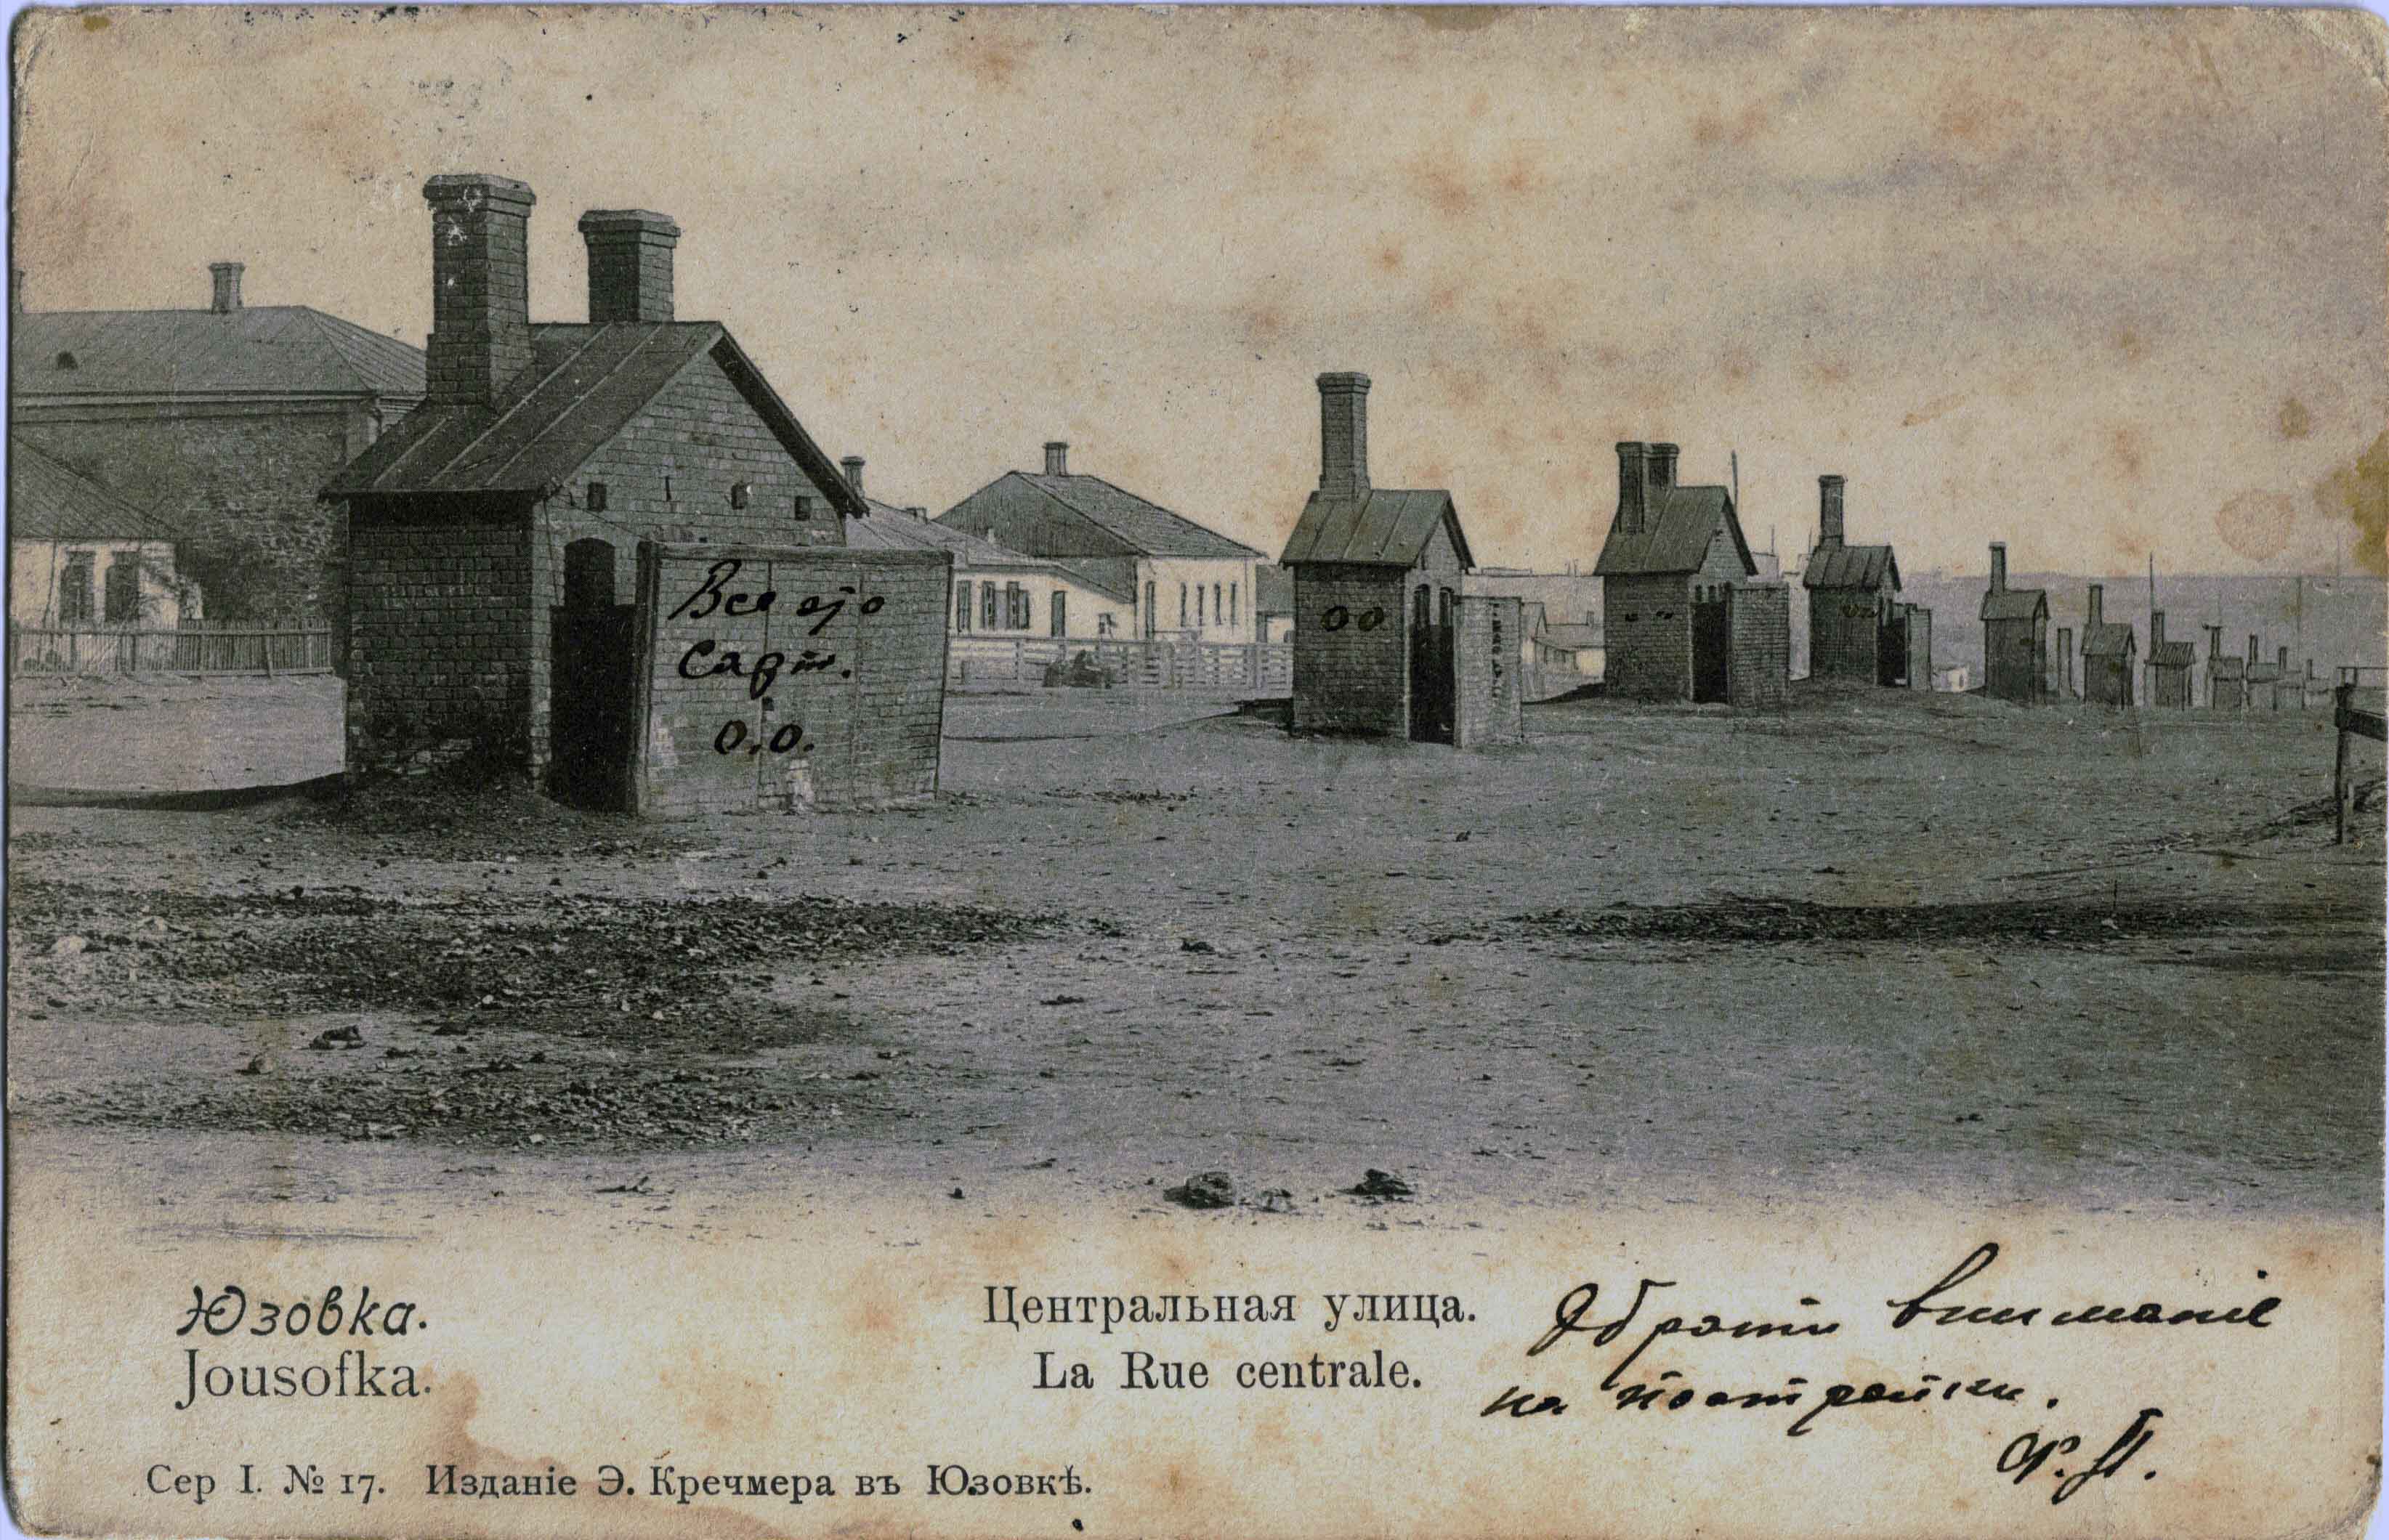 Все это
Сарт.
О.О.
ОО
Юзовка.
Jousofka.
Центральная улица.
La Rue centrale.
Обрати вниманіе
на постройки.
Сер I. № 17. Изданіе Э. Кречмера въ Юзовкѣ.